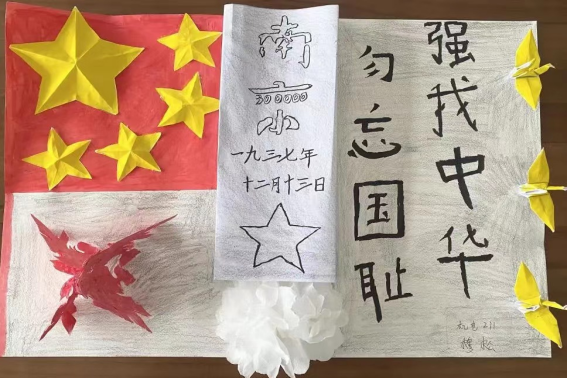 南
京
300000
一九三七年
十二月十三日
勿忘国耻
强我中华